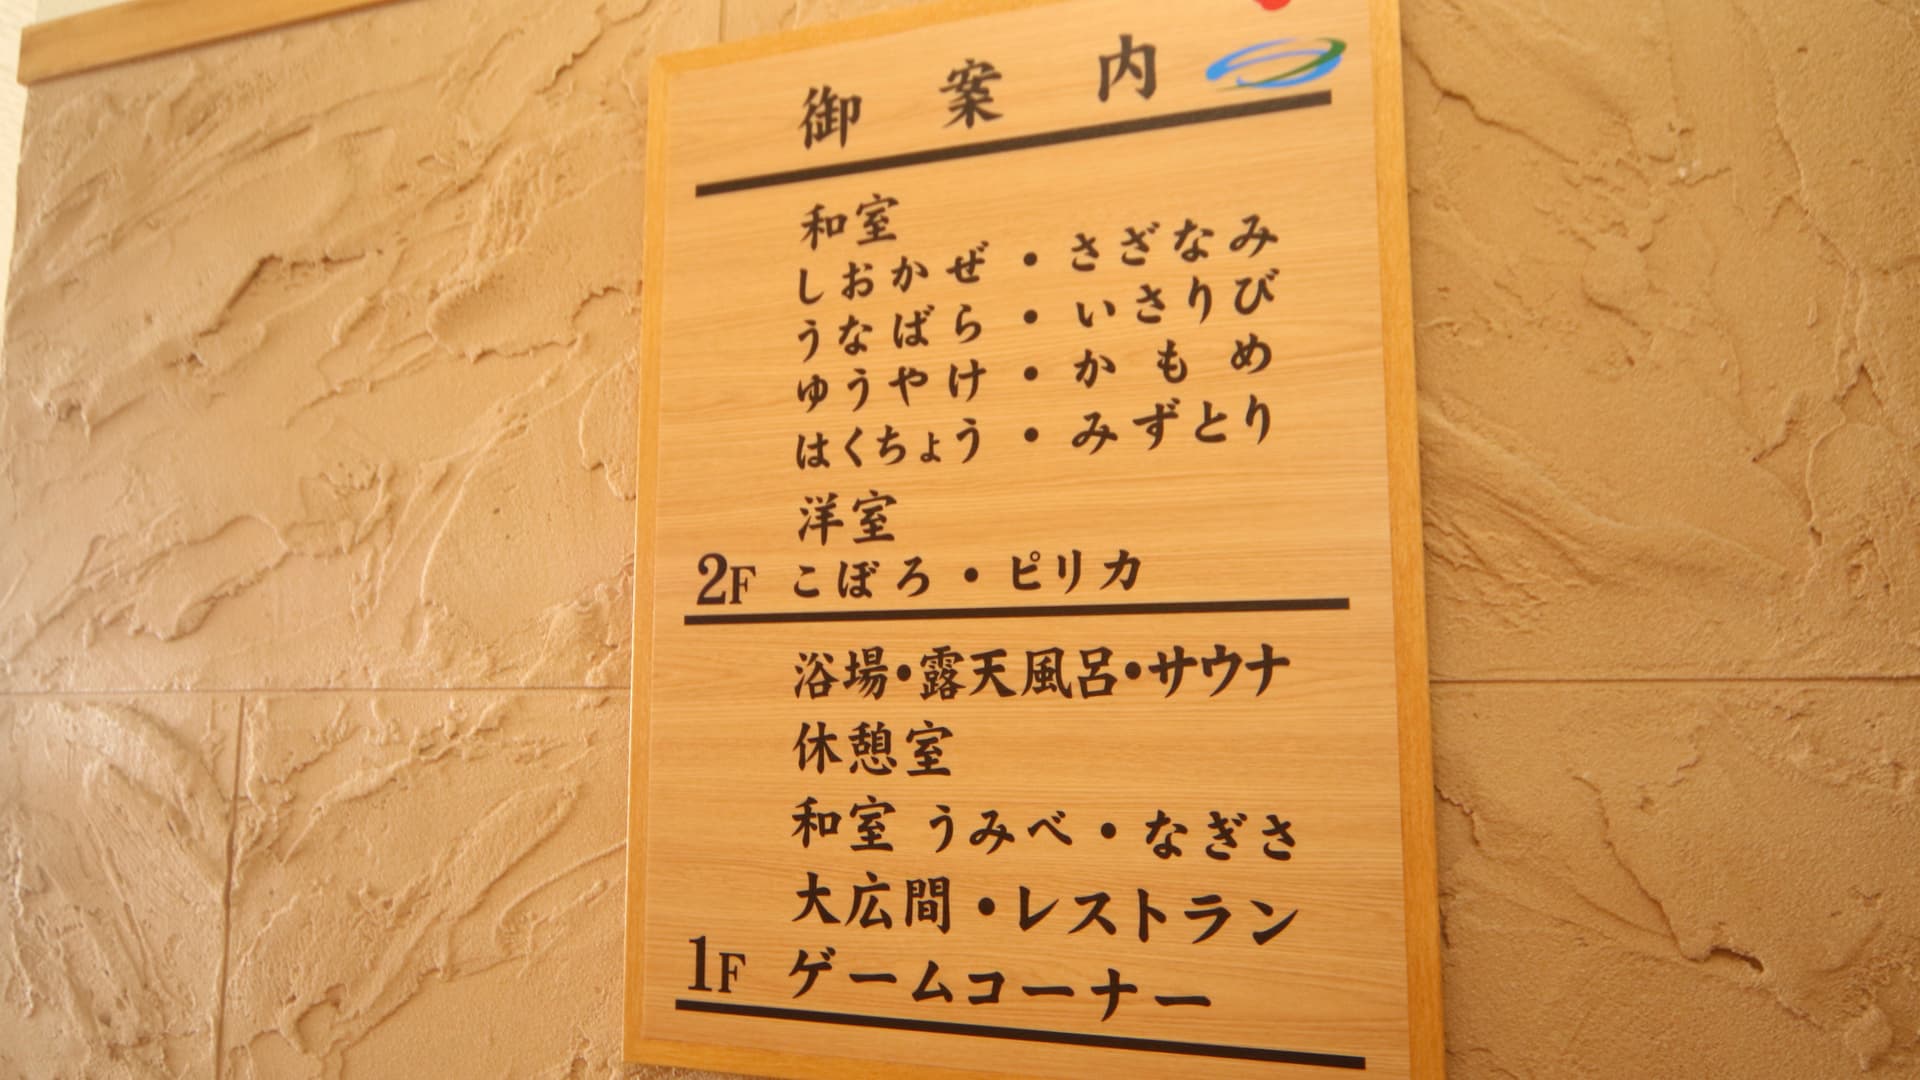 御案内
和室
しおかぜ・さざなみ
うなばら・いさりび
ゆうやけ・かもめ
はくちょう・みずとり
洋室
2F こぼろ・ピリカ
浴場・露天風呂・サウナ
休憩室
和室 うみべ・なぎさ
大広間・レストラン
1F ゲームコーナー